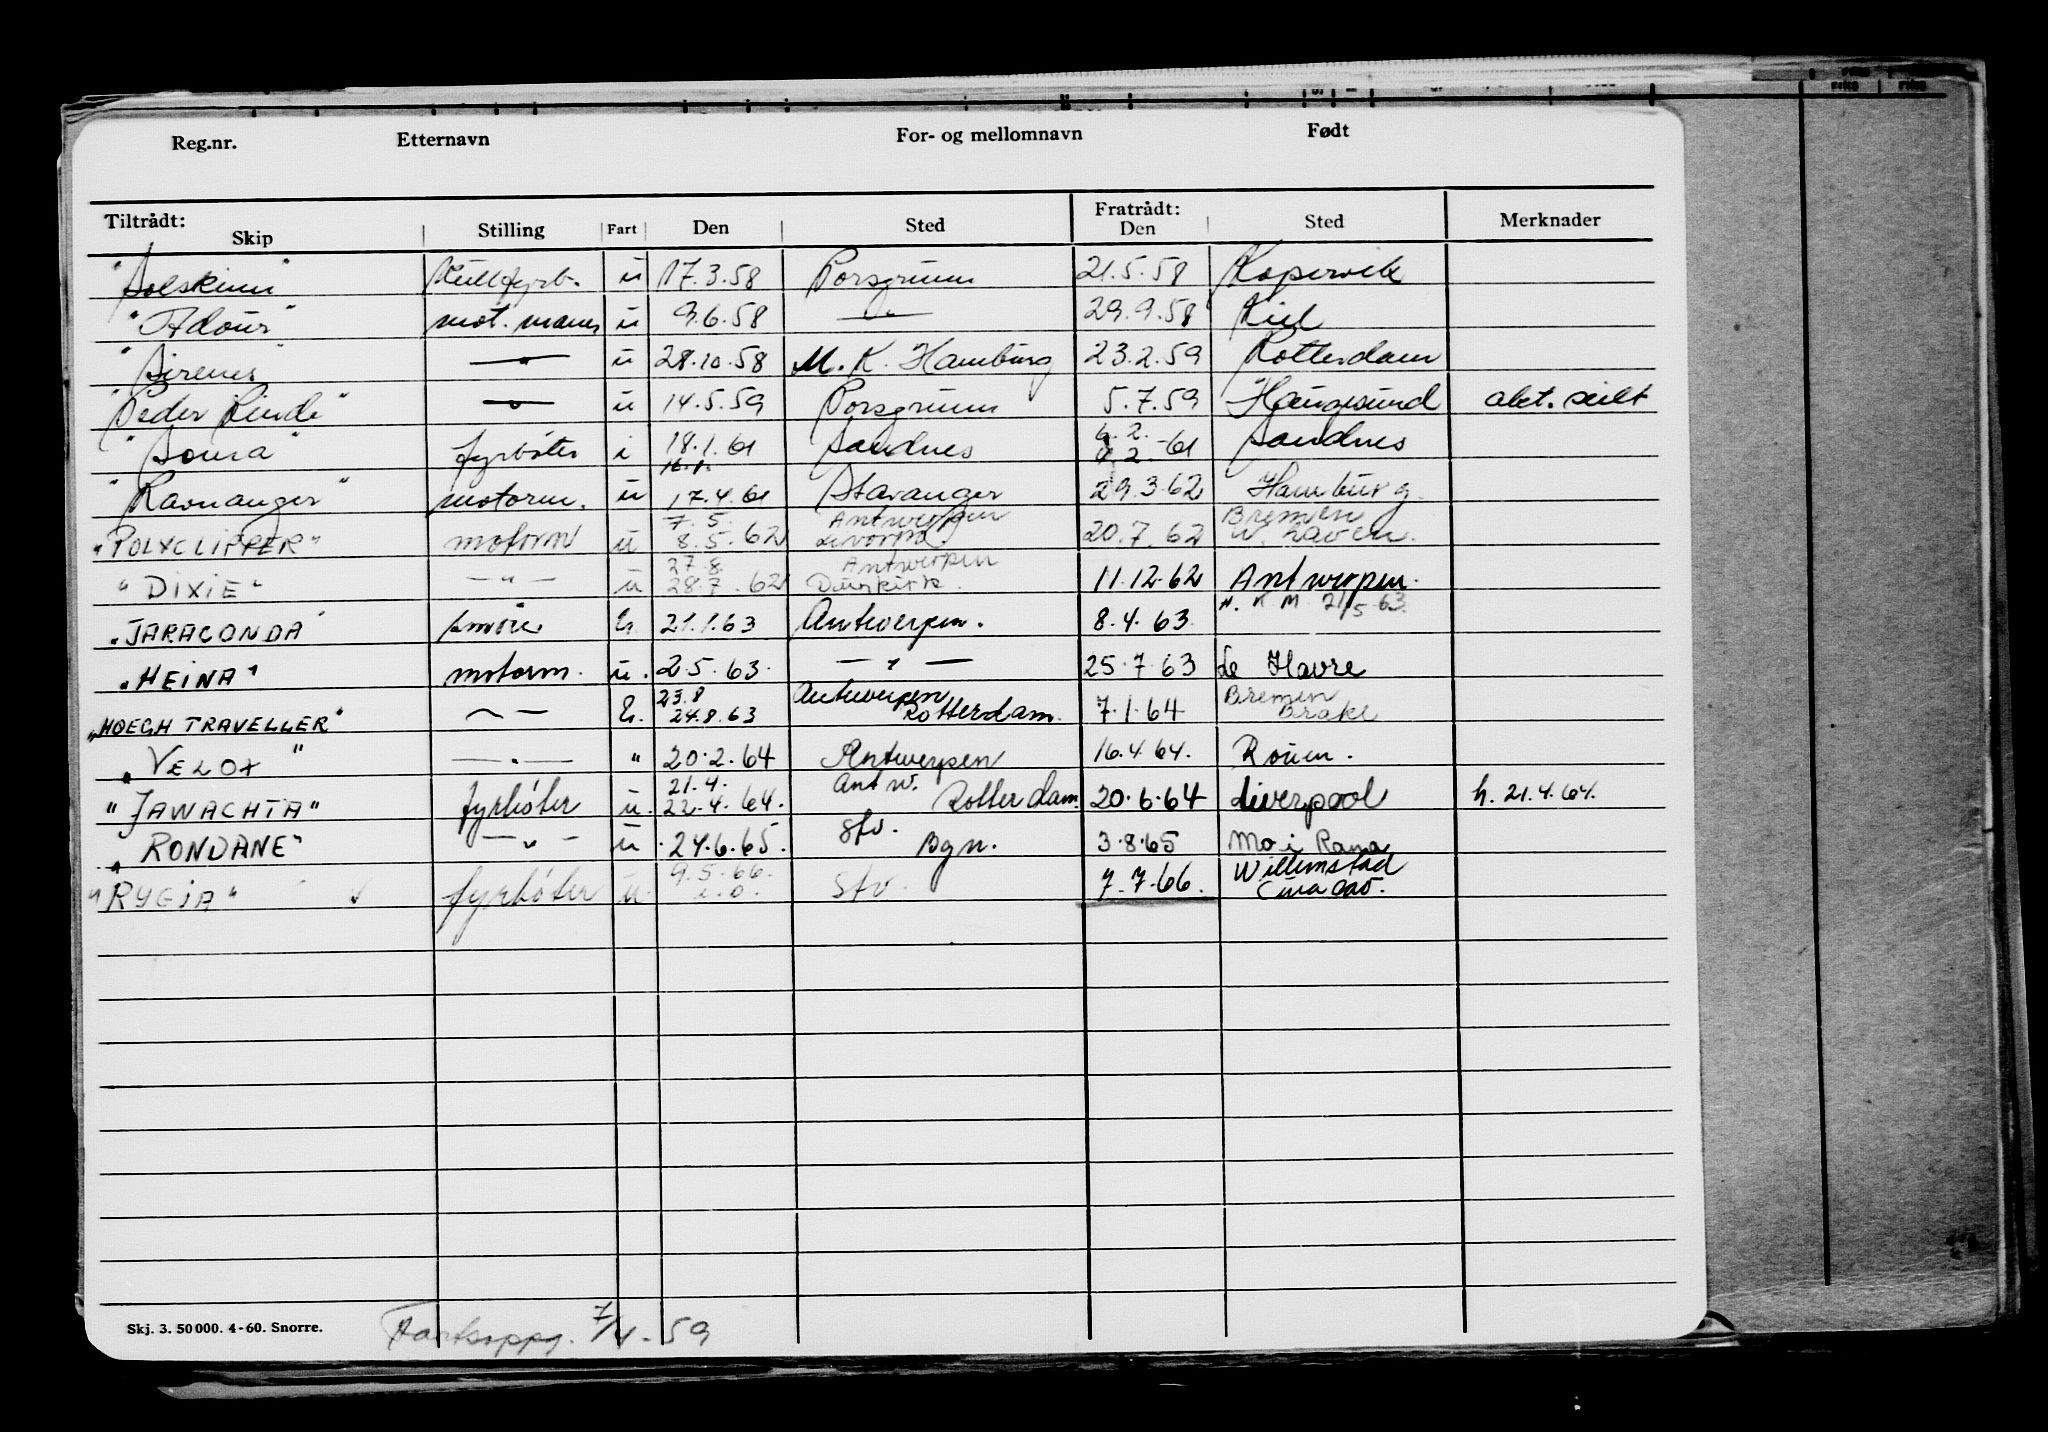 Reg.nr. Etternavn For- og mellomnavn Født
Tiltrådt: Skip Stilling Fart Den Sted Fratrådt: Den Sted Merknader
"Solskinn" Kullfyrb. u 17.3.58 Porsgrunn 21.5.58 Kopervik
"Adour" mot. mann u 9.6.58 — " — 29.9.58 Kiel
"Sirenes" — " — u 28.10.58 M.K. Hamburg 23.2.59 Rotterdam
"Peder Rinde" — " — u 14.5.59 Porsgrunn 5.7.59 Haugesund akt. seilt
"Soma" fyrbøter i 18.1.61 Sandnes 6.2.-61 Sandnes
"Ravnanger" motorm. u 17.4.61 Stavanger 29.3.62 Hamburg
7.5. Antwerpen Bremen
"POLYCLIPPER" motorm u 8.5.62 20.7.62 W. haven.
27.8. Antwerpen
"DIXIE" — " — u 28.7.62 Dunkirk. 11.12.62 Antwerpen.
"JARACONDA" smører 21.1.63 Antwerpen. 8.4.63 N.K.M. 21/5.63.
"HEINA" motorm. u. 2.5.63. — " — 25.7.63 Le Havre
23.8 Antwerpen Bremen
"HOEGH TRAVELLER" — " — 24.8.63 Rotterdam. 7.1.64 Brake
"VELOX" — " — " 20.2.64 Antwerpen 16.4.64. Rouen.
21.4. Antw.
"JAWACHTA" fyrbøter u. 22.4.64. Rotterdam. 20.6.64 Liverpool h. 21.4.64.
"RONDANE" — " — u 24.6.65. Stv. Bgn. 3.8.65 Mo i Rana
9.5.66. Willemstad
"RYGIA" fyrbøter u. Stv. 7.7.66. Curacao.
Skj. 3. 50000. 4-60. Snorre. Fartsoppg. 7/4-59